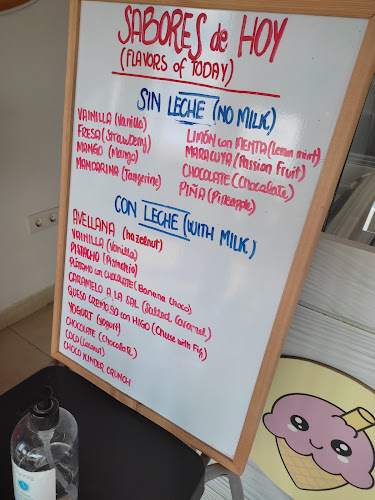 SABORES de HOY
(FLAVORS of TODAY)
SIN LECHE (NO MILK)
VAINILLA (Vanilla)
FRESA (Strawberry)
MANGO (Mango)
MANDARINA (Tangerine)
LIMÓN con MENTA (Lemon mint)
MARACUYA (Passion Fruit)
CHOCOLATE (Chocolate)
PIÑA (Pineapple)
CON LECHE (WITH MILK)
AVELLANA (hazelnut)
VAINILLA (Vanilla)
PISTACHO (Pistachio)
PLÁTANO con CHOCOLATE (Banana Choco)
CARAMELO A LA SAL (Salted Caramel)
QUESO CREMOSO con HIGO (Cheese with Fig)
YOGURT (Yogurt)
CHOCOLATE (Chocolate)
COCO (Coconut)
CHOCO KINDER CRUNCH